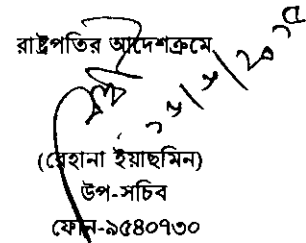 রাষ্ট্রপতির আদেশক্রমে,
(রেহানা ইয়াছমিন)
উপ-সচিব
ফোন-৯৫৪০৭৩০